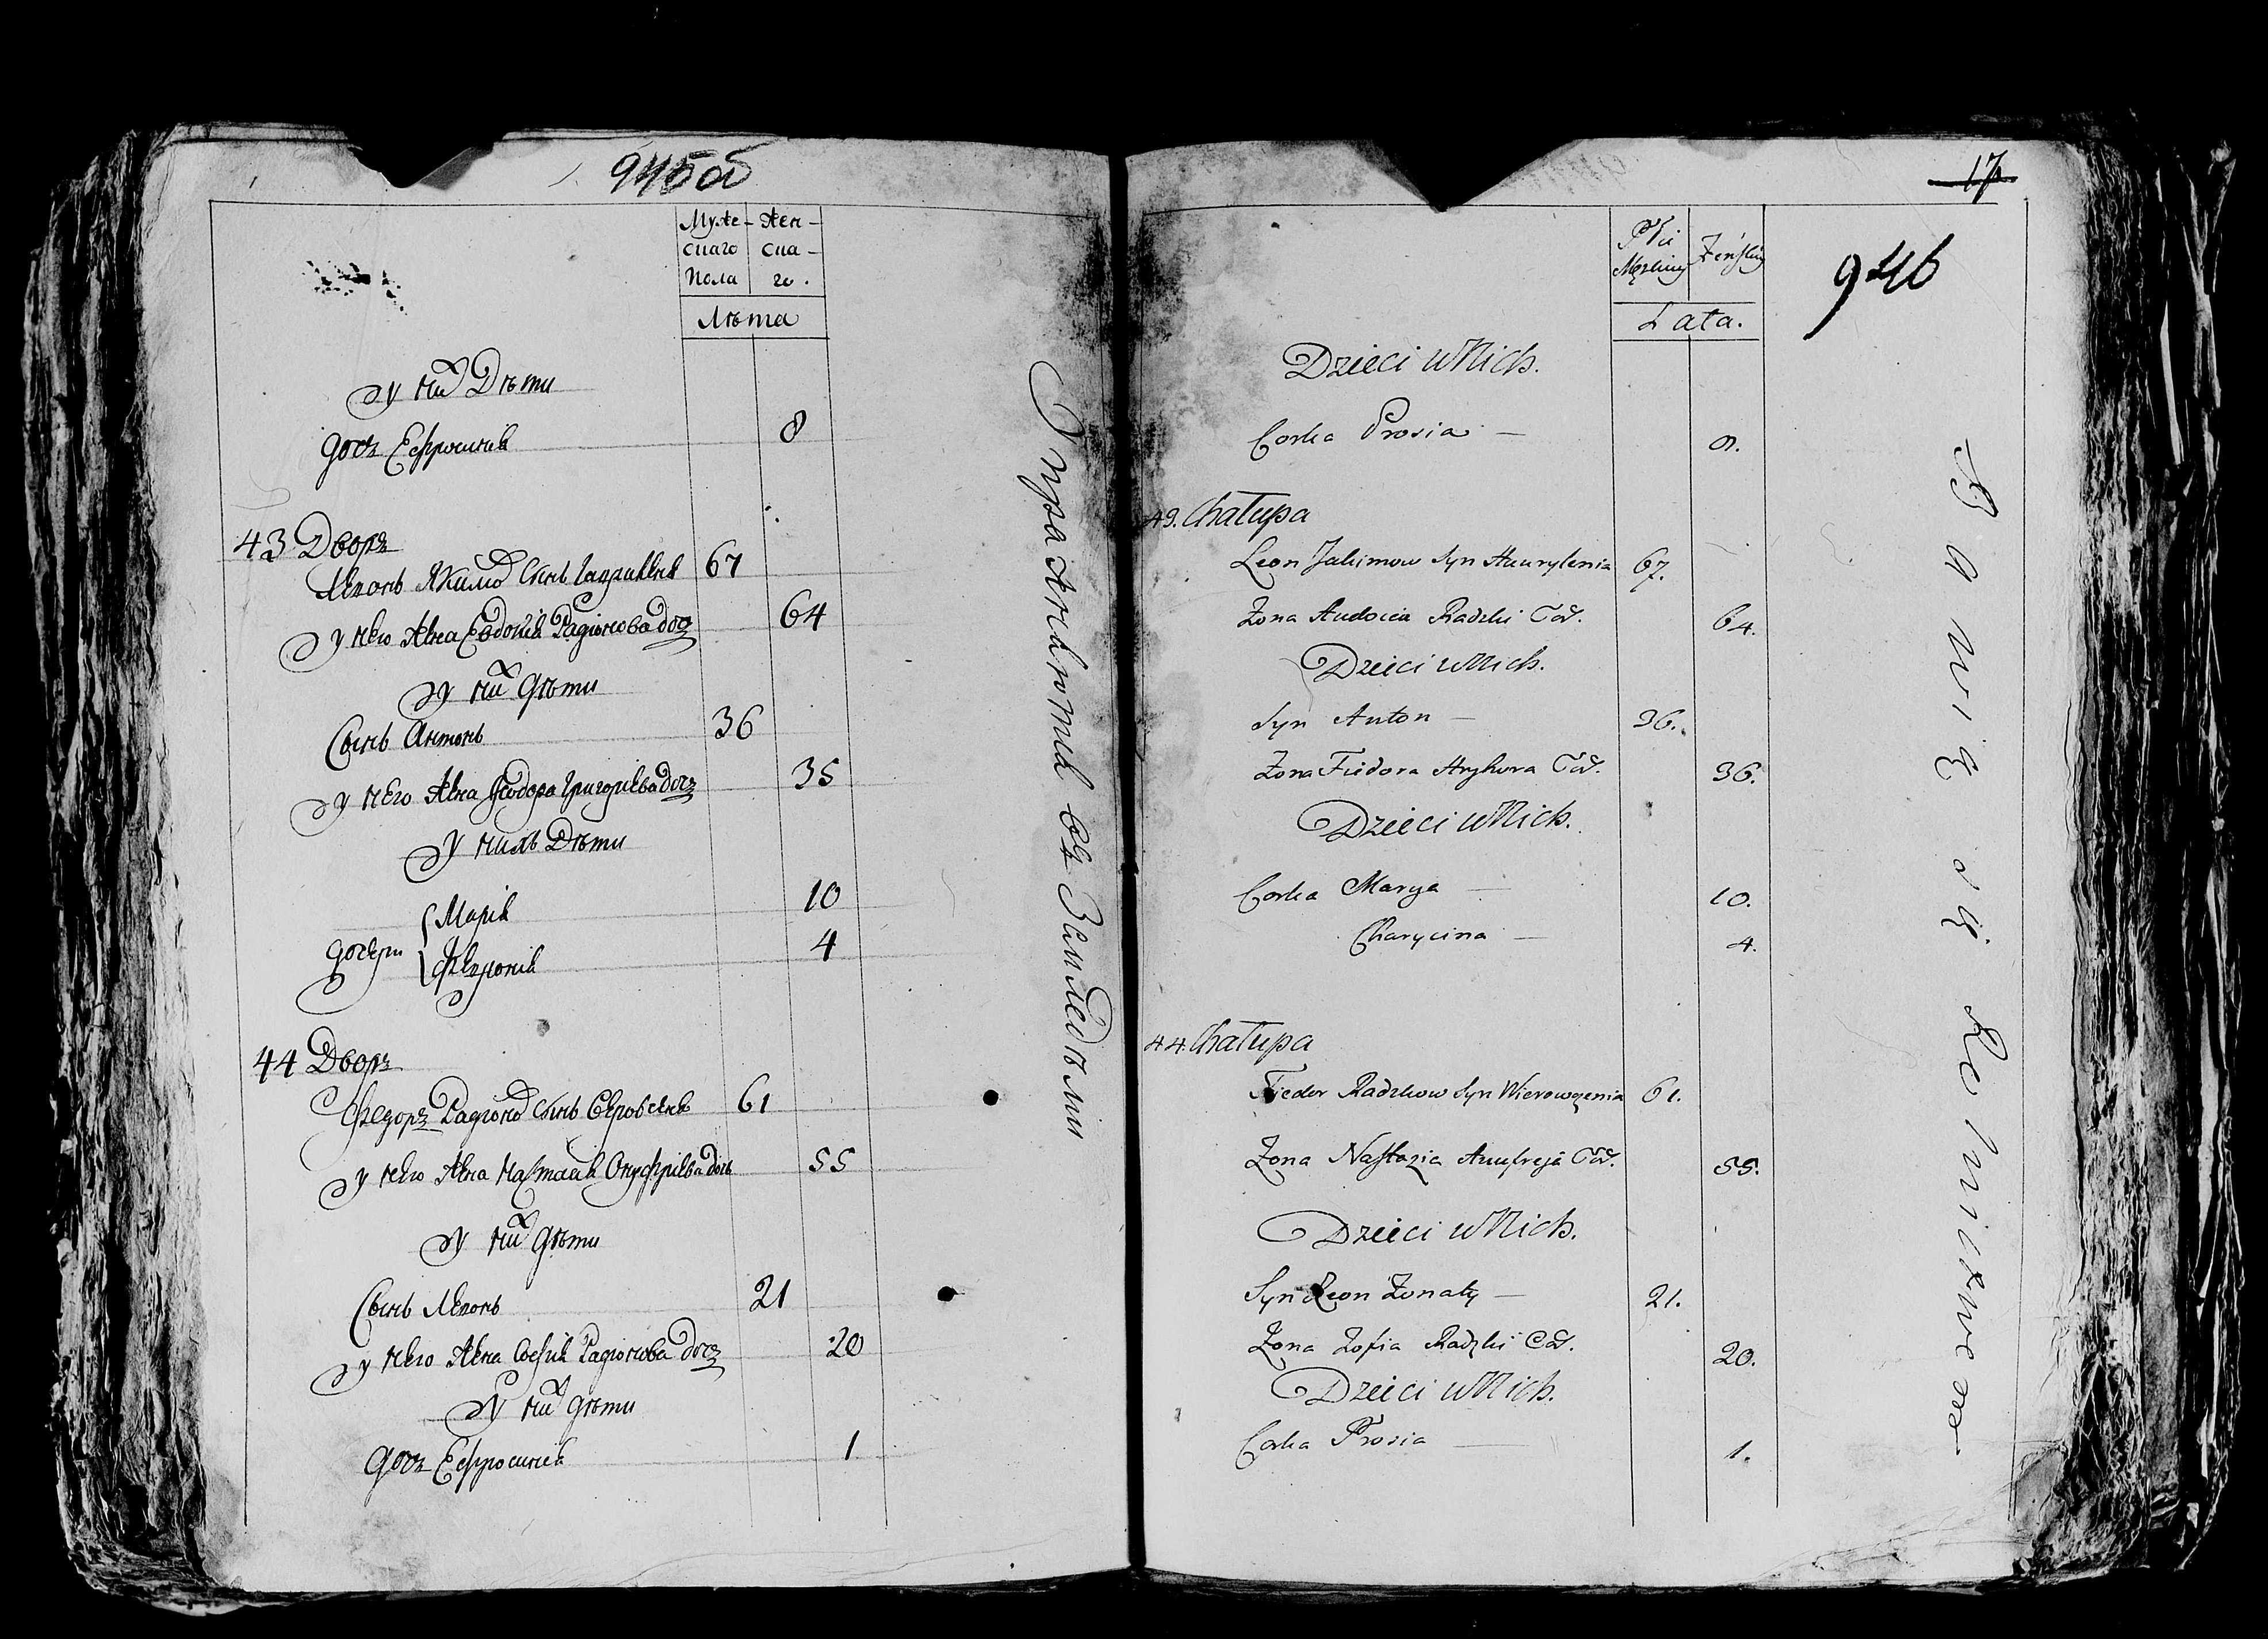 945об
Муже- Жен-
скаго ска-
Пола го.
Лѣта
У них Дѣти
дочъ Ефросинія 8
43 Дворъ
Леѡнъ Якимов Сынъ 67
У него Жена Евдокія Радіонова дочъ 64
У них дѣти
Сынъ Антонъ 36
У него Жена Ѳеодора Григорьева дочъ 35
У нихъ Дѣти
Марія 10
дочери
4
44 Дворъ
Ѳедоръ Радіонов Сынъ 61
У него Жена Настасія Онуфріева дочь 55
У них дѣти
Сынъ Леѡнъ 21
У него Жена Софія Радіонова дочъ 20
У них дѣти
дочъ Ефросинія 1
Упражняются въ Земледѣліи
17
946
Płci
Męzkiey Żeńskiey
Lata.
Dzieci u Nich.
Corka Prosia — 8.
43. Chałupa
Leon Jakimow Syn Hawrylenia 67.
Żona Audocia Radzki Cór. 64.
Dzieci u Nich.
Syn Anton — 36.
Żona Fiedora Hryhora Cór. 36.
Dzieci u Nich.
Corka Marya — 10.
Charycina — 4.
44. Chałupa
Fiedor Radzkow Syn Wierowczenia 61.
Żona Nastazia Anufreja Cór. 55.
Dzieci u Nich.
Syn Leon Żonaty — 21.
Żona Zofia Radzki Cór. 20.
Dzieci u Nich.
Corka Prosia — 1.
Bawią się Rolnictwem